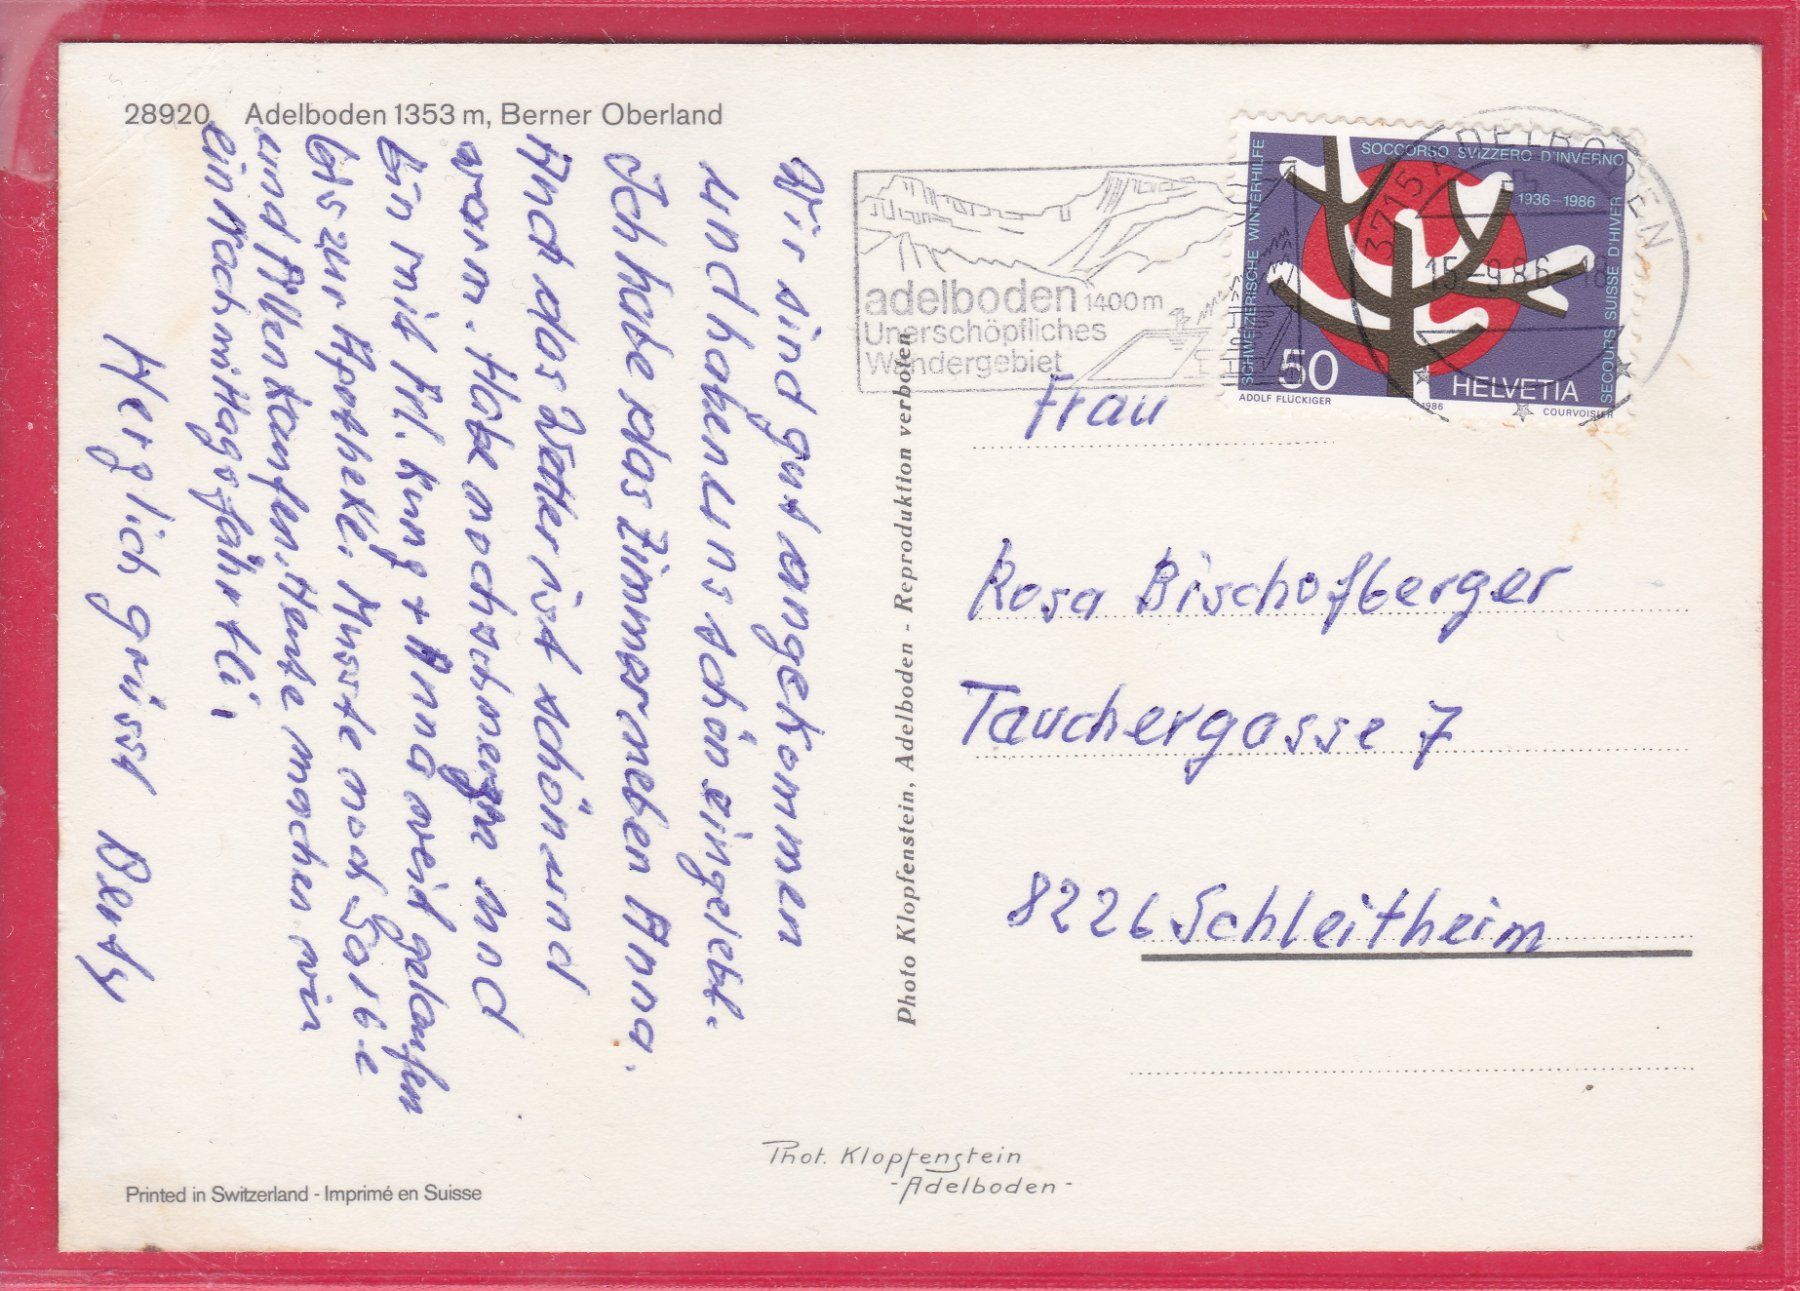 28920 Adelboden 1353 m, Berner Oberland
Wir sind gut angekommen
und haben uns schön eingelebt.
Ich habe das Zimmer neben Anna.
Auch das Wetter ist schön und
warm. Habe noch schmerzen und
bin mit Frl. Kung + Anna weit gelaufen
bis zur Apotheke. Musste noch Salbe
und Pillen kaufen. Heute machen wir
ein Nachmittagsfährtli.
Herzlich grüsst Berty
Printed in Switzerland - Imprimé en Suisse
Phot. Klopfenstein
-Adelboden-
Photo Klopfenstein, Adelboden - Reproduktion verboten
adelboden 1400 m
Unerschöpfliches
Wandergebiet
3715 ADELBODEN
15.-9.86.-18
SCHWEIZERISCHE WINTERHILFE
SOCCORSO SVIZZERO D'INVERNO
1936-1986
SECOURS SUISSE D'HIVER
50
HELVETIA
ADOLF FLÜCKIGER
1986
COURVOISIER
Frau
Rosa Bischofberger
Tauchergasse 7
8226 Schleitheim